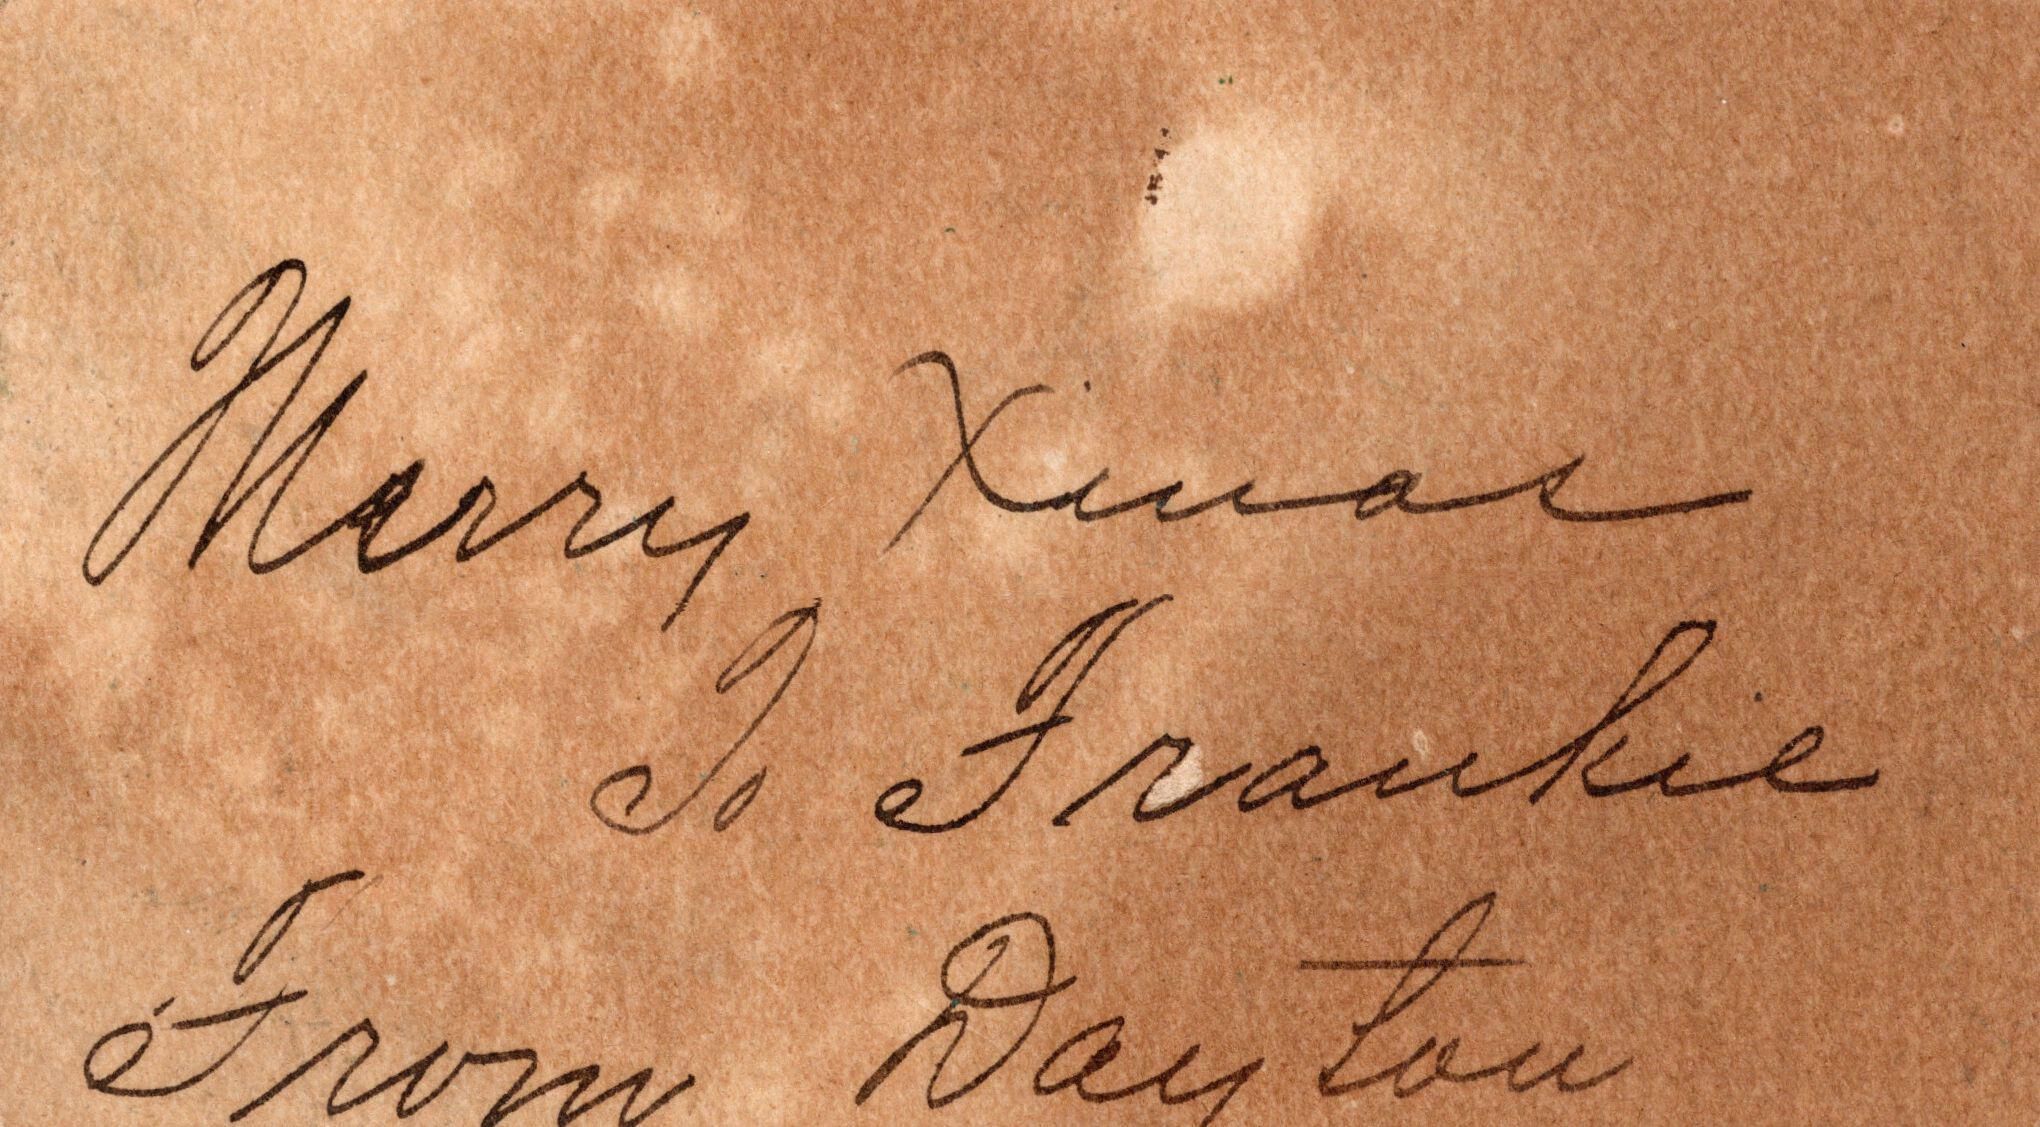 Merry Xmas
To Frankie
From Dayton